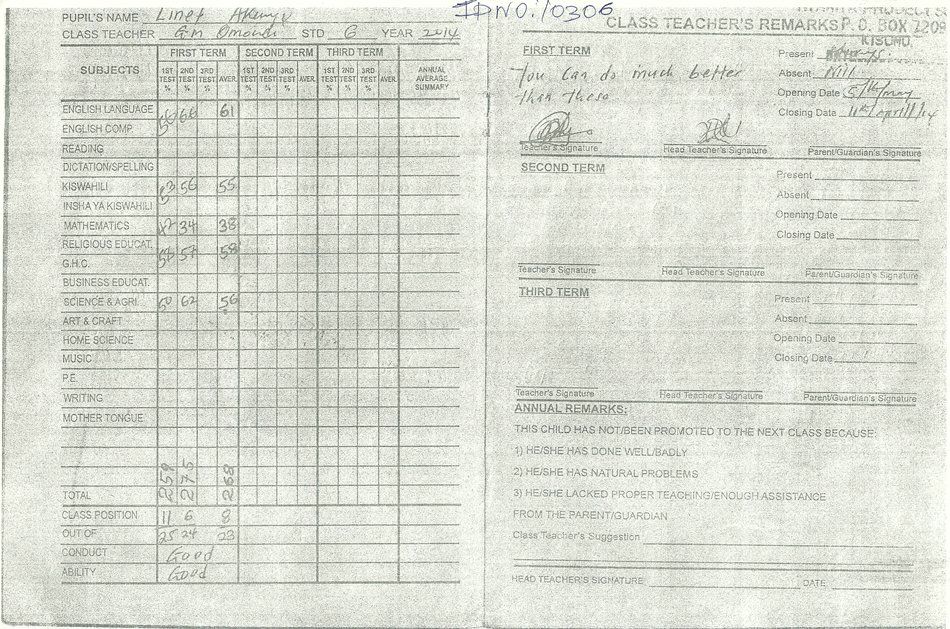 IDNO:10306
PUPIL'S NAME Linet
CLASS TEACHER Omondi STD 6 YEAR 2014
SUBJECTS
FIRST TERM SECOND TERM THIRD TERM
1ST TEST % 2ND TEST % 3RD TEST % AVER. 1ST TEST % 2ND TEST % 3RD TEST % AVER. 1ST TEST % 2ND TEST % 3RD TEST % AVER. ANNUAL AVERAGE SUMMARY
ENGLISH LANGUAGE 66 61
ENGLISH COMP
READING
DICTATION/SPELLING
KISWAHILI 56 55
INSHA YA KISWAHILI
MATHEMATICS 34 38
RELIGIOUS EDUCAT. 57 58
G.H.C.
BUSINESS EDUCAT.
SCIENCE & AGRI. 50 62 56
ART & CRAFT
HOME SCIENCE
MUSIC
P.E.
WRITING
MOTHER TONGUE
TOTAL 259 275 268
CLASS POSITION 11 6 8
OUT OF 25 24 23
CONDUCT Good
ABILITY Good
CLASS TEACHER'S REMARKS
P.O. BOX 7209
KISUMU
FIRST TERM
You can do much better
than these
Present
Absent Nill
Opening Date 5th/may
Closing Date 11th/april/14
Teacher's Signature Head Teacher's Signature Parent/Guardian's Signature
SECOND TERM
Present
Absent
Opening Date
Closing Date
Teacher's Signature Head Teacher's Signature Parent/Guardian's Signature
THIRD TERM
Present
Absent
Opening Date
Closing Date
Teacher's Signature Head Teacher's Signature Parent/Guardian's Signature
ANNUAL REMARKS:
THIS CHILD HAS NOT/BEEN PROMOTED TO THE NEXT CLASS BECAUSE:
1) HE/SHE HAS DONE WELL/BADLY
2) HE/SHE HAS NATURAL PROBLEMS
3) HE/SHE LACKED PROPER TEACHING/ENOUGH ASSISTANCE
FROM THE PARENT/GUARDIAN
Class Teacher's Suggestion
HEAD TEACHER'S SIGNATURE DATE